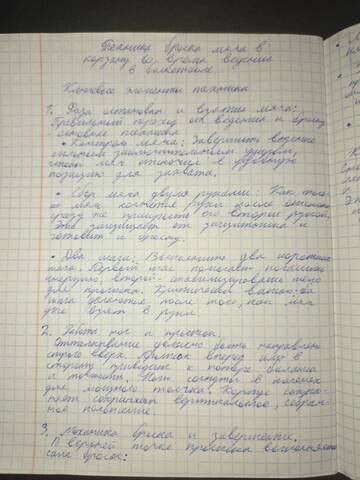 Техника броска мяча в
корзину во время ведения
в баскетболе.
Ключевые элементы техники
1. Фаза остановки и взятия мяча:
Правильный переход от ведения к броску
основные техники
• Контроль мяча: Завершить ведение
сильным заключительным ударом,
чтобы мяч отскочил в удобную
позицию для захвата.
• Сбор мяча двумя руками: Как толь-
ко мяч коснётся руки после отскока
сразу же прижмите его второй рукой.
Это защищает от защитника и
готовит к броску.
• Два шага: Выполните два коротких
шага. Первый шаг помогает погасить
энергию, второй - стабилизировать тело
для прыжка. Критически важно:
шаги делаются после того, как мяч
уже взят в руки
2. Работа ног и прыжок.
Отталкивание должно быть направлено
строго вверх. Прыжок вперед или в
сторону приведет к потере баланса
и точности. Ноги согнуты в коленях
для мощного толчка. Корпус
сохраняет вертикальное, собран-
ное положение.
3. Механика броска и завершение.
В верхней точке прыжка выполняется
сам бросок: